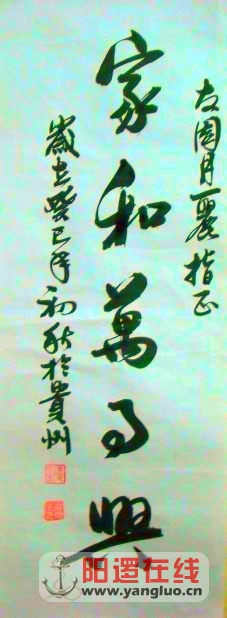 月麗指正
家和萬事興
歲在癸巳年初秋於貴州
阳逻在线
www.yangluo.cn